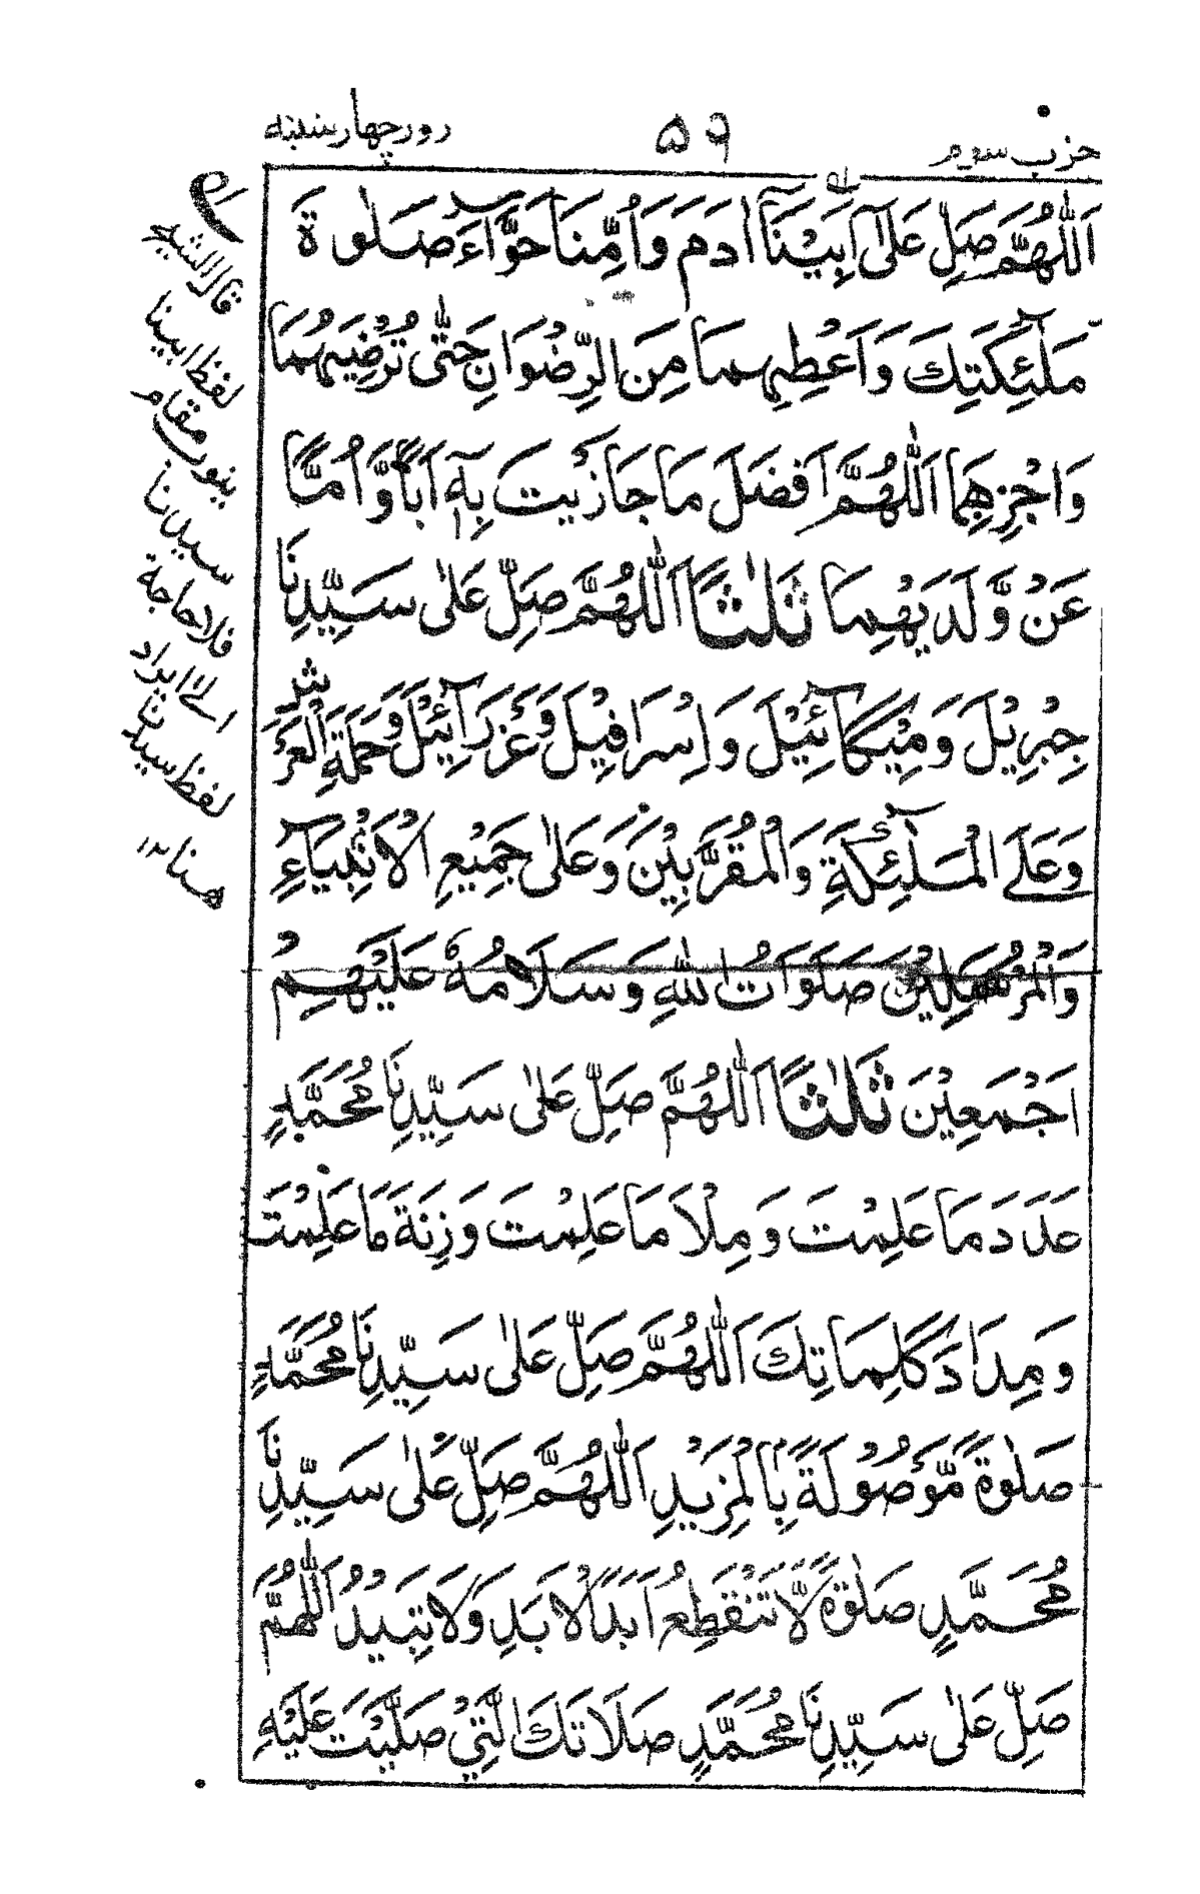 حزب سوم
۵۹
روز چهار شنبه
اَللّٰهُمَّ صَلِّ عَلٰٓى اَبِيْنَآ اٰدَمَ وَاُمِّنَا حَوَّآءَ صَلٰوةَ
مَلٰٓئِكَتِكَ وَاَعْطِهِمَا مِنَ الرِّضْوَانِ حَتّٰى تُرْضِيَهُمَا
وَاجْزِهِمَا اَللّٰهُمَّ اَفْضَلَ مَا جَازَيْتَ بِهٖٓ اَبًا وَّاُمًّا
عَنْ وَّلَدَيْهِمَا ثَلٰثًا اَللّٰهُمَّ صَلِّ عَلٰى سَيِّدِنَا
جِبْرِيْلَ وَمِيْكَآئِيْلَ وَاِسْرَافِيْلَ وَعَزْرَآئِيْلَ وَحَمَلَةِ الْعَرْشِ
وَعَلَى الْمَلٰٓئِكَةِ وَالْمُقَرَّبِيْنَ وَعَلٰى جَمِيْعِ الْاَنْۢبِيَآءِ
وَالْمُرْسَلِيْنَ صَلَوَاتُ اللّٰهِ وَسَلَامُهٗ عَلَيْهِمْ
اَجْمَعِيْنَ ثَلٰثًا اَللّٰهُمَّ صَلِّ عَلٰى سَيِّدِنَا مُحَمَّدٍ
عَدَدَ مَا عَلِمْتَ وَمِلْاَ مَا عَلِمْتَ وَزِنَةَ مَا عَلِمْتَ
وَمِدَادَ كَلِمَاتِكَ اَللّٰهُمَّ صَلِّ عَلٰى سَيِّدِنَا مُحَمَّدٍ
صَلٰوةً مَّوْصُوْلَةً بِالْمَزِيْدِ اَللّٰهُمَّ صَلِّ عَلٰى سَيِّدِنَا
مُحَمَّدٍ صَلٰوةً لَّا تَنْقَطِعُ اَبَدَ الْاَبَدِ وَلَا تَبِيْدُ اَللّٰهُمَّ
صَلِّ عَلٰى سَيِّدِنَا مُحَمَّدٍ صَلَاتَكَ الَّتِيْ صَلَّيْتَ عَلَيْهِ
قال الشيخ
لفظ ابينا
ينوب مقام
سيدنا
فلا حاجة
الى ايراد
لفظ سيدنا
هنا ۱۲